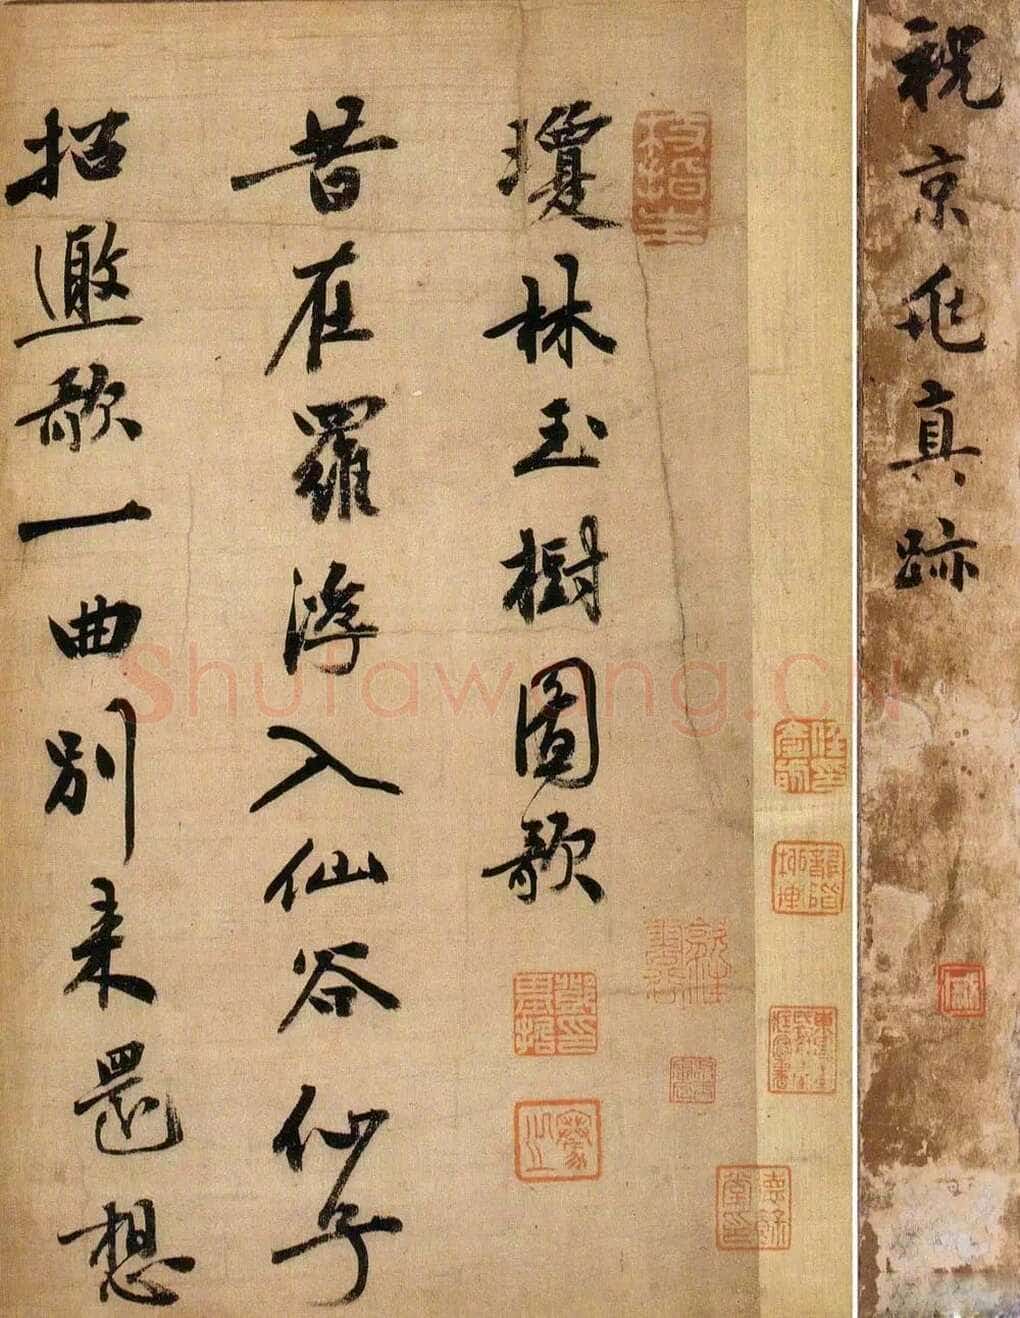 祝京兆真跡
瓊林玉樹圖歌
昔在羅浮入仙谷仙子
招邀歌一曲別來還想
枝指生
Shufawang.cn